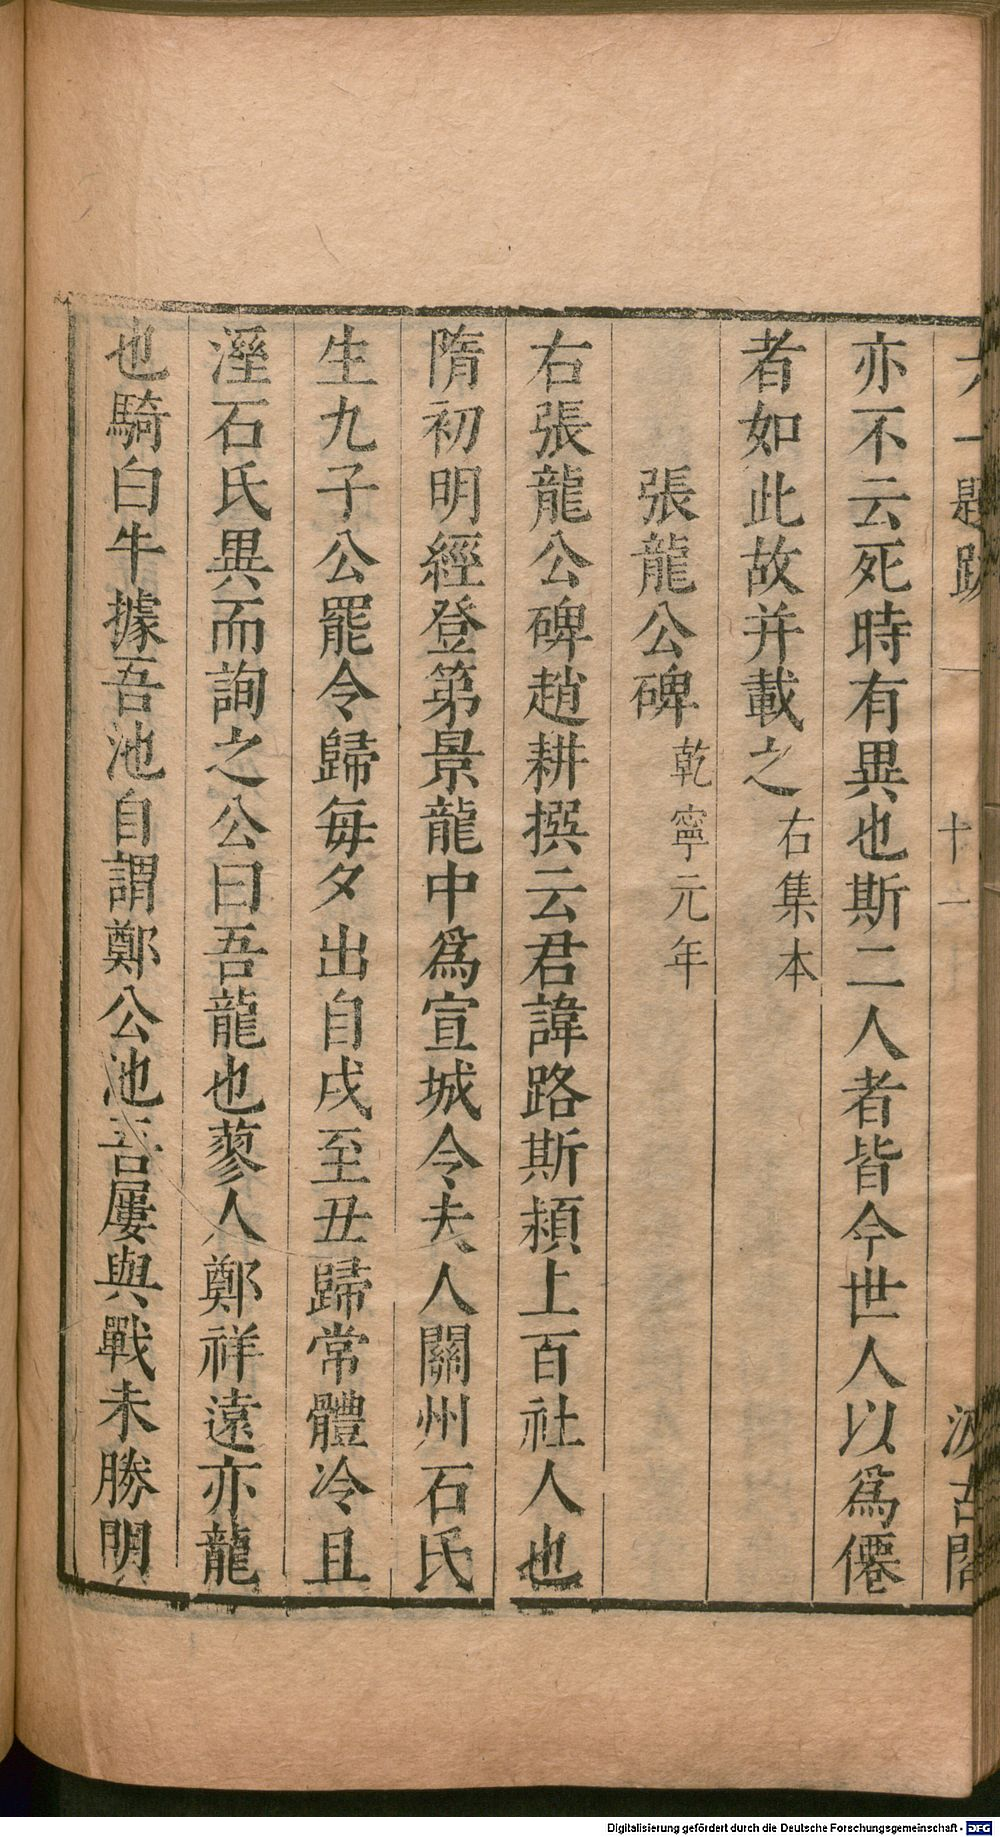 六一題跋 十一 汲古閣
亦不云死時有異也斯二人者皆今世人以爲僊
者如此故并載之右集本
張龍公碑乾寧元年
右張龍公碑趙耕撰云君諱路斯潁上百社人也
隋初明經登第景龍中爲宣城令夫人關州石氏
生九子公罷令歸每夕出自戌至丑歸常體冷且
溼石氏異而詢之公曰吾龍也蓼人鄭祥遠亦龍
也騎白牛據吾池自謂鄭公池吾屢與戰未勝明
Digitalisierung gefördert durch die Deutsche Forschungsgemeinschaft - DFG